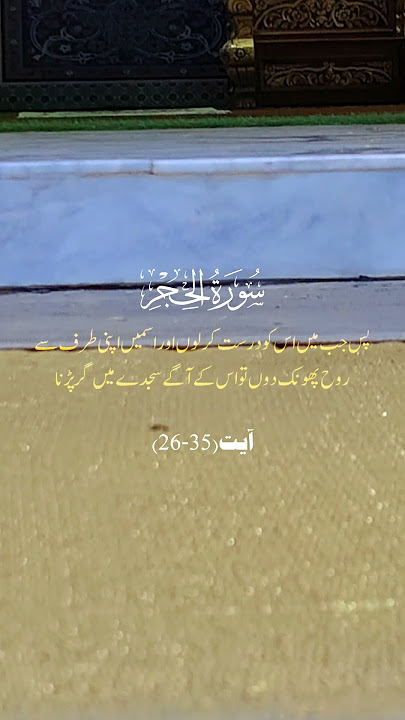 سُورَةُ الحِجْرِ
پس جب میں اس کو درست کرلوں اور اسمیں اپنی طرف سے
روح پھونک دوں تو اس کے آگے سجدے میں گر پڑنا
آیت (26-35)